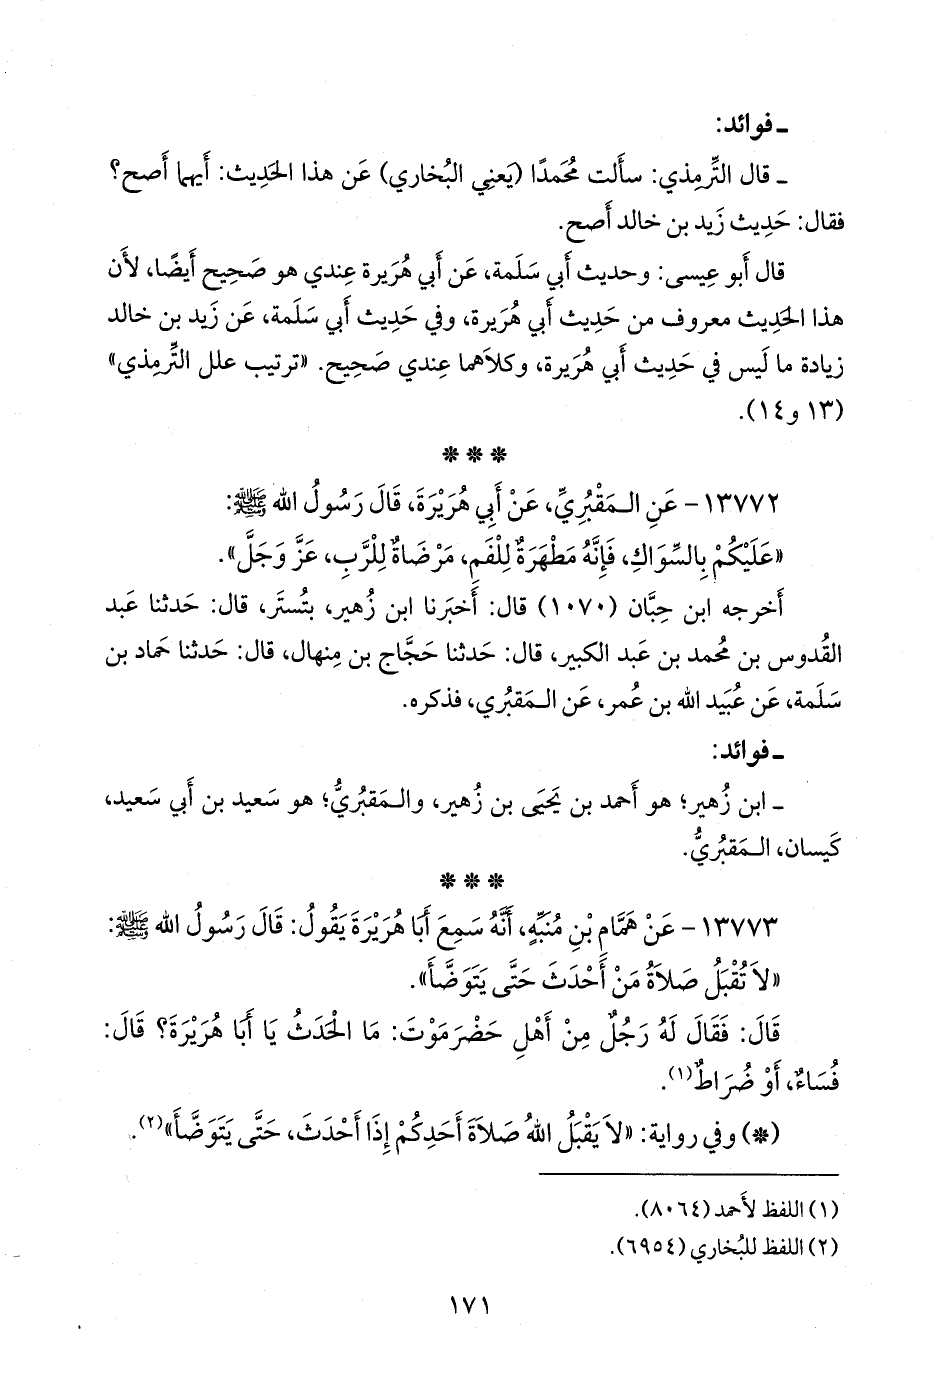 ـ فوائد:
ـ قال التِّرمِذي: سأَلت مُحَمدًا (يَعنِي البُخاري) عَن هذا الحَدِيث: أَيهما أَصح؟
فقال: حَدِيث زَيد بن خالد أَصح.
قال أَبو عِيسى: وحديث أَبي سَلَمة، عَن أَبي هُرَيرة عِندي هو صَحِيح أَيضًا، لأَن
هذا الحَدِيث معروف من حَدِيث أَبي هُرَيرة، وفي حَدِيث أَبي سَلَمة، عَن زَيد بن خالد
زيادة ما لَيس في حَدِيث أَبي هُرَيرة، وكلاَهما عِندي صَحِيح. «ترتيب علل التِّرمِذي»
(١٣ و١٤).
* * *
١٣٧٧٢ - عَنِ الـمَقْبُرِيِّ، عَنْ أَبِي هُرَيْرَةَ، قَالَ رَسُولُ الله ﷺ:
«عَلَيْكُمْ بِالسِّوَاكِ، فَإِنَّهُ مَطْهَرَةٌ لِلْفَمِ، مَرْضَاةٌ لِلْرَّبِ، عَزَّ وَجَلَّ».
أَخرجه ابن حِبَّان (١٠٧٠) قال: أَخبَرنا ابن زُهير، بتُستَر، قال: حَدثنا عَبد
القُدوس بن مُحمد بن عَبد الكبير، قال: حَدثنا حَجَّاج بن مِنهال، قال: حَدثنا حَماد بن
سَلَمة، عَن عُبَيد الله بن عُمر، عَن الـمَقبُري، فذكره.
ـ فوائد:
ـ ابن زُهير؛ هو أَحمد بن يَحيَى بن زُهير، والـمَقبُريُّ؛ هو سَعيد بن أَبي سَعيد،
كَيسان، الـمَقبُريُّ.
* * *
١٣٧٧٣ - عَنْ هَمَّامِ بْنِ مُنَبِّهٍ، أَنَّهُ سَمِعَ أَبَا هُرَيْرَةَ يَقُولُ: قَالَ رَسُولُ الله ﷺ:
«لاَ تُقْبَلُ صَلاَةُ مَنْ أَحْدَثَ حَتَّى يَتَوَضَّأَ».
قَالَ: فَقَالَ لَهُ رَجُلٌ مِنْ أَهْلِ حَضْرَمَوْتَ: مَا الْحَدَثُ يَا أَبَا هُرَيْرَةَ؟ قَالَ:
فُسَاءٌ، أَوْ ضُرَاطٌ(١).
(*) وفي رواية: «لاَ يَقْبَلُ اللهُ صَلاَةَ أَحَدِكُمْ إِذَا أَحْدَثَ، حَتَّى يَتَوَضَّأَ»(٢).
(١) اللفظ لأَحمد (٨٠٦٤).
(٢) اللفظ للبُخاري (٦٩٥٤).
١٧١